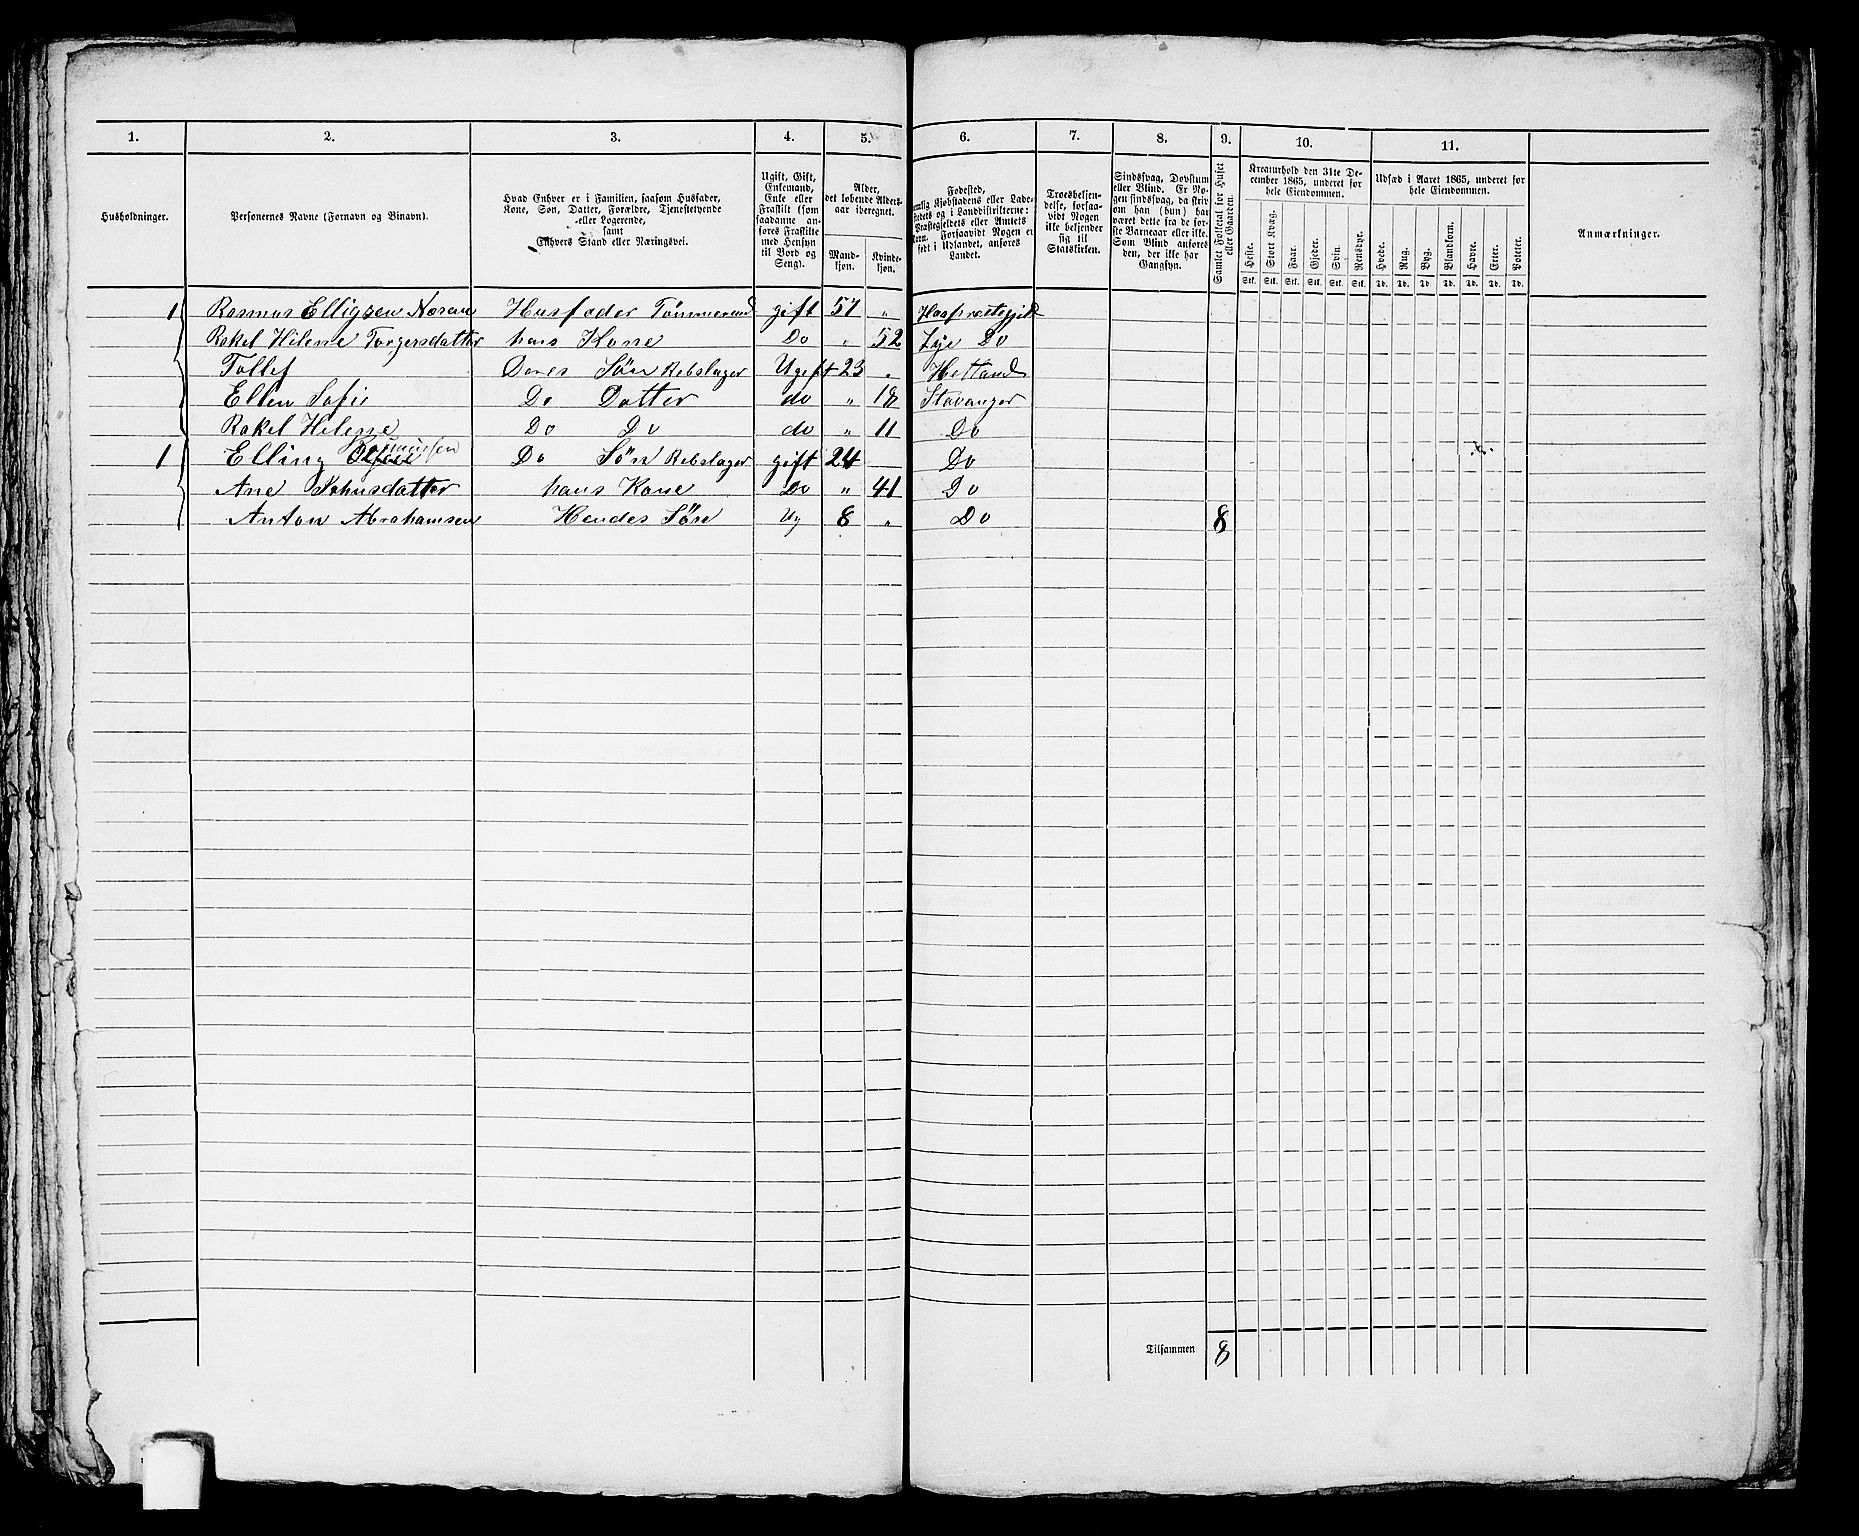 1. 2. 3. 4. 5. 6. 7. 8. 9. 10. 11.
Husholdninger.
Personernes Navne (Fornavn og Binavn).
Hvad Enhver er i Familien, saasom Husfader,
Kone, Søn, Datter, Forældre, Tjenestetyende
eller Logerende,
samt
Enhvers Stand eller Næringsvei.
Ugift, Gift,
Enkemand,
Enke eller
Fraskilt (som
saadanne an-
føres Fraskilte
med Hensyn
til Bord og
Seng).
Alder,
det løbende Alders-
aar iberegnet.
Mand-
kjøn.
Kvinde-
kjøn.
Fødested,
Kjøbstadens eller Lade-
stedets og i Landdistrikterne:
Præstegjeldets eller Amtets
Navn. Forsaavidt Nogen er
født i Udlandet, anføres
Landet.
Troesbekjen-
delse, forsaa-
vidt Nogen
ikke bekjender
sig til
Statskirken.
Sindssvag, Døvstum
eller Blind. Er No-
gen sindssvag, da skriv
om han (hun) har
været dette fra de før-
ste Barneaar eller ikke.
Som Blind anføres
den, der ikke har
Gangsyn.
Samlet Folketal for Huset
eller Gaarden.
Kreaturhold den 31te De-
cember 1865, underet for
hele Eiendommen.
Heste. Stort Kvæg. Faar. Gjeder. Svin. Rensdyr.
Stk. Stk. Stk. Stk. Stk. Stk.
Udsæd i Aaret 1865, underet for
hele Eiendommen.
Hvede. Rug. Byg. Blandkorn. Havre. Erter. Poteter.
Td. Td. Td. Td. Td. Td. Td.
Anmærkninger.
1 Rasmus Elligsen Husfader gift 57 "
Rakel Hilene Torgersdatter hans Kone Do " 52 Lye Do
Tollef Deres Søn Rebslager Ugift 23 " Hetland
Ellen Sofie Do Datter do " 18 Stavanger
Rakel Helene Do Do do " 11 Do
1 Elling Rasmusen Do Søn Rebslager gift 24 Do
Ane Johnsdatter hans Kone Do " 41 Do
Anton Abrahamsen Hendes Søn Ug 8 " Do 8
Tilsammen 8